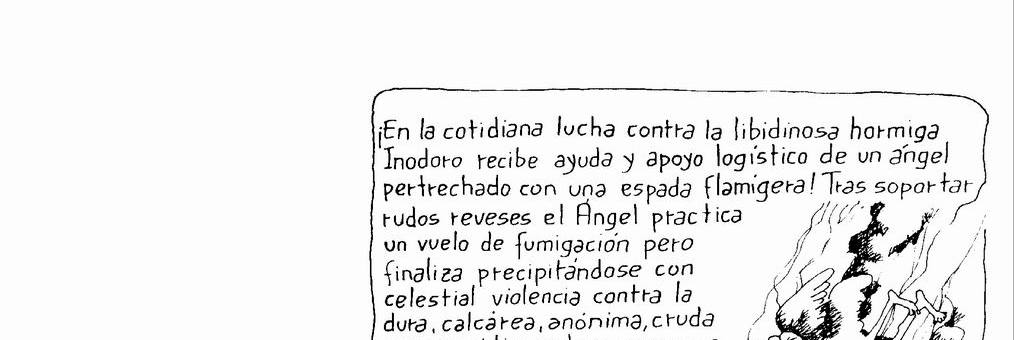 ¡En la cotidiana lucha contra la libidinosa hormiga
Inodoro recibe ayuda y apoyo logístico de un ángel
pertrechado con una espada flamígera! Tras soportar
rudos reveses el Ángel practica
un vuelo de fumigación pero
finaliza precipitándose con
celestial violencia contra la
dura, calcárea, anónima, cruda